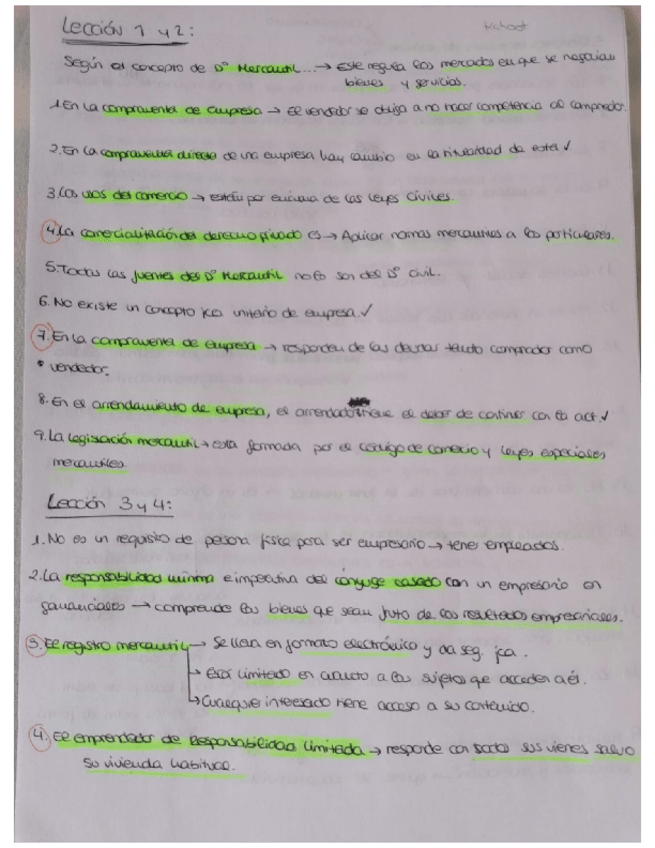 Lección 1 y 2:
Kahoot
Según el concepto de Dº Mercantil... → Este regula los mercados en que se negocian
bienes y servicios.
1. En la compraventa de empresa → El vendedor se obliga a no hacer competencia al comprador.
2. En la compraventa directa de una empresa hay cambio en la titularidad de esta ✓
3. Los usos del comercio → están por encima de las leyes civiles.
4. La comercialización del derecho privado es → Aplicar normas mercantiles a los particulares.
5. Todas las fuentes del Dº Mercantil no lo son del Dº civil.
6. No existe un concepto jco unitario de empresa ✓
7. En la compraventa de empresa → responden de las deudas tanto comprador como
vendedor.
8. En el arrendamiento de empresa, el arrendado tiene el deber de continuar con la act. ✓
9. La legislación mercantil → está formada por el código de comercio y leyes especiales
mercantiles.
Lección 3 y 4:
1. No es un requisito de persona física para ser empresario → tener empleados.
2. La responsabilidad mínima e imperativa del conyuge casado con un empresario en
gananciales → comprende los bienes que sean fruto de los resultados empresariales.
3. El registro mercantil → Se lleva en formato electrónico y da seg. jca.
→ Está limitado en cuanto a los sujetos que acceden a él.
→ Cualquier interesado tiene acceso a su contenido.
4. El emprendedor de Responsabilidad Limitada → responde con todos sus vienes salvo
su vivienda habitual.